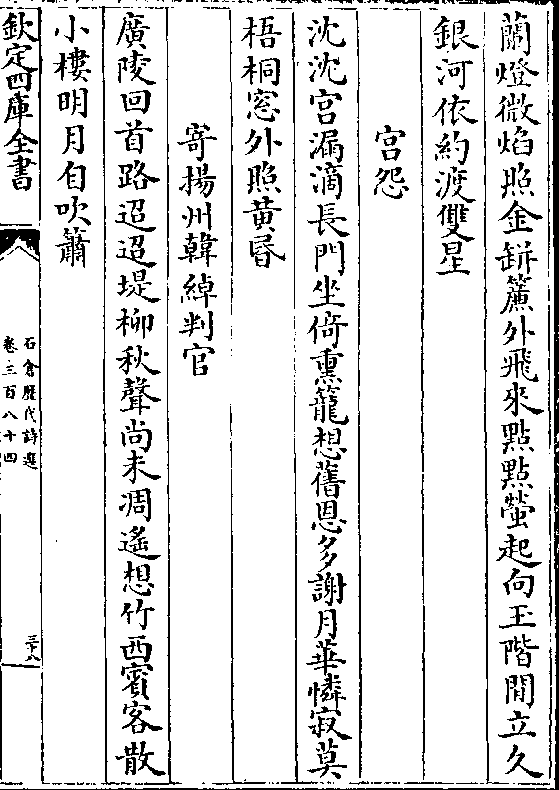 蘭燈微焰照金缾簾外飛來點點螢起向玉階閒立久
銀河依約渡雙星
宮怨
沈沈宮漏滴長門坐倚熏籠想舊恩多謝月華憐寂莫
梧桐窓外照黃昏
寄揚州韓綽判官
廣陵回首路迢迢堤柳秋聲尚未凋遙想竹西賓客散
小樓明月自吹簫
欽定四庫全書
石倉歷代詩選
卷三百八十四
三十八